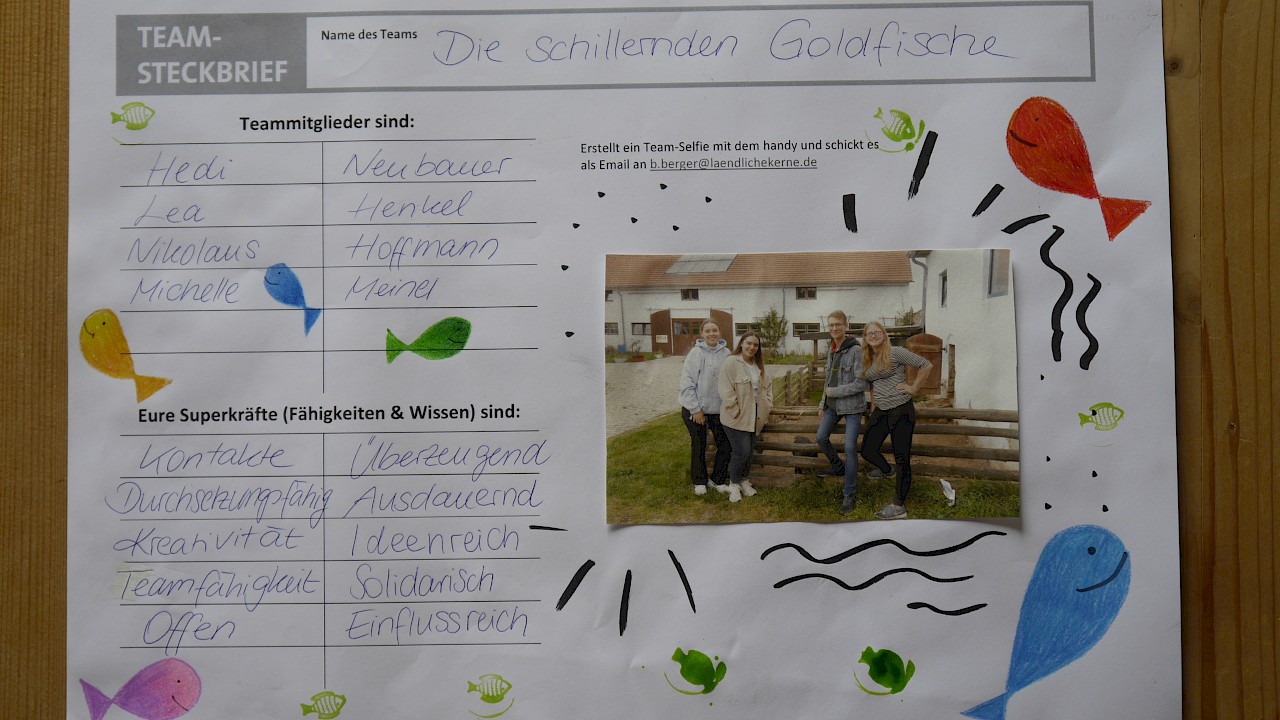 TEAM-
STECKBRIEF
Name des Teams Die schillernden Goldfische
Teammitglieder sind:
Hedi Neubauer
Lea Henkel
Nikolaus Hoffmann
Michelle Meinel
Erstellt ein Team-Selfie mit dem handy und schickt es
als Email an b.berger@laendlichekerne.de
Eure Superkräfte (Fähigkeiten & Wissen) sind:
Kontakte Überzeugend
Durchsetzungsfähig Ausdauernd
Kreativität Ideenreich
Teamfähigkeit Solidarisch
Offen Einflussreich